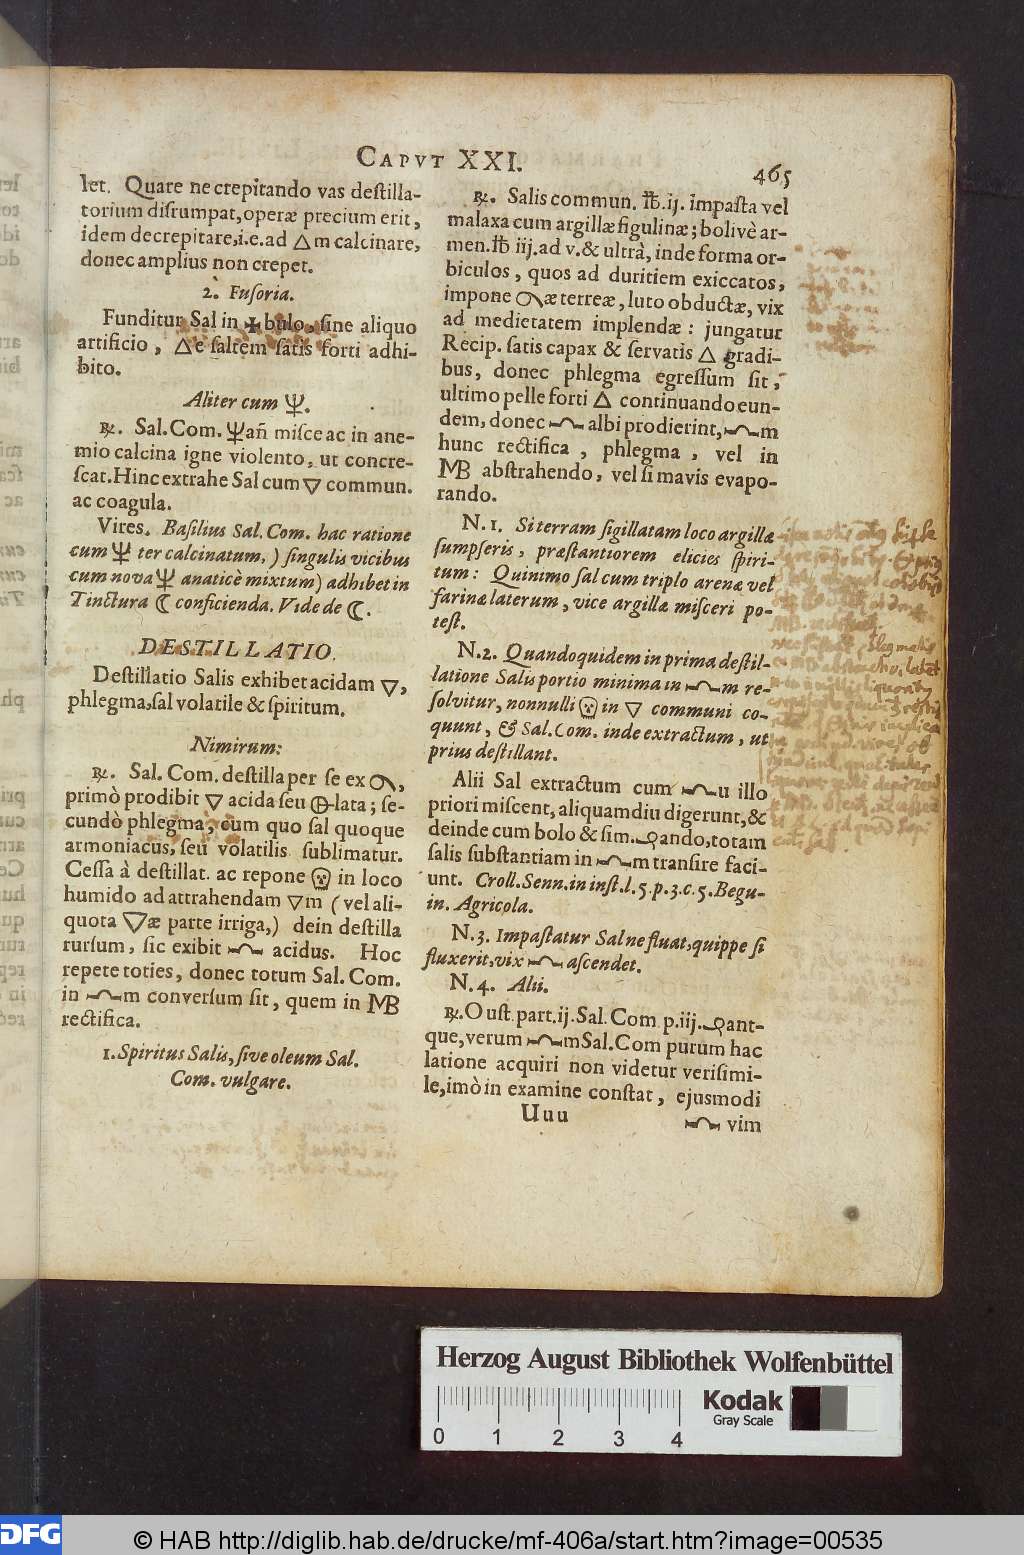 CAPVT XXI.
465
let. Quare ne crepitando vas destilla-
torium disrumpat, operæ precium erit,
idem decrepitare, i.e. ad 🜂m calcinare,
donec amplius non crepet.
2. Fusoria.
Funditur Sal in ✠bulo, sine aliquo
artificio, 🜂e saltem satis forti adhi-
bito.
Aliter cum 🜏.
℞. Sal. Com. 🜏 añ misce ac in ane-
mio calcina igne violento, ut concre-
scat. Hinc extrahe Sal cum 🜄 commun.
ac coagula.
Vires. Basilius Sal. Com. hac ratione
cum 🜏 ter calcinatum, ) singulis vicibus
cum nova 🜏 anaticè mixtum) adhibet in
Tinctura ☾ conficienda. Vide de ☾.
DESTILLATIO.
Destillatio Salis exhibet acidam 🜄,
phlegma, sal volatile & spiritum.
Nimirum:
℞. Sal. Com. destilla per se ex,
primò prodibit 🜄 acida seu lata; se-
cundò phlegma, cum quo sal quoque
armoniacus, seu volatilis sublimatur.
Cessa à destillat. ac repone 💀 in loco
humido ad attrahendam 🜄m (vel ali-
quota 🜄æ parte irriga,) dein destilla
rursum, sic exibit acidus. Hoc
repete toties, donec totum Sal. Com.
in m conversum sit, quem in MB
rectifica.
1. Spiritus Salis, sive oleum Sal.
Com. vulgare.
℞. Salis commun. ℔. ij. impasta vel
malaxa cum argillæ figulinæ; bolivè ar-
men. ℔ iij. ad v. & ultrà, inde forma or-
biculos, quos ad duritiem exiccatos,
impone æ terreæ, luto obductæ, vix
ad medietatem implendæ: jungatur
Recip. satis capax & servatis 🜂 gradi-
bus, donec phlegma egressum sit,
ultimo pelle forti 🜂 continuando eun-
dem, donec albi prodierint, m
hunc rectifica, phlegma, vel in
MB abstrahendo, vel si mavis evapo-
rando.
N. 1. Si terram sigillatam loco argillæ
sumpseris, præstantiorem elicies spiri-
tum: Quinimo sal cum triplo arenæ vel
farinæ laterum, vice argillæ misceri po-
test.
N. 2. Quandoquidem in prima destil-
latione Salis portio minima in m re-
solvitur, nonnulli 💀 in 🜄 communi co-
quunt, & Sal. Com. inde extractum, ut
prius destillant.
Alii Sal extractum cum u illo
priori miscent, aliquamdiu digerunt, &
deinde cum bolo & sim. ando, totam
salis substantiam in m transire faci-
unt. Croll. Senn. in inst. l. 5. p. 3. c. 5. Begu-
in. Agricola.
N. 3. Impastatur Sal ne fluat, quippe si
fluxerit, vix ascendet.
N. 4. Alii.
℞. O ust. part. ij. Sal. Com p. iij. ant-
que, verum m Sal. Com purum hac
latione acquiri non videtur verisimi-
le, imò in examine constat, ejusmodi
Uuu
vim
Herzog August Bibliothek Wolfenbüttel
Kodak
Gray Scale
0 1 2 3 4
DFG
© HAB http://diglib.hab.de/drucke/mf-406a/start.htm?image=00535